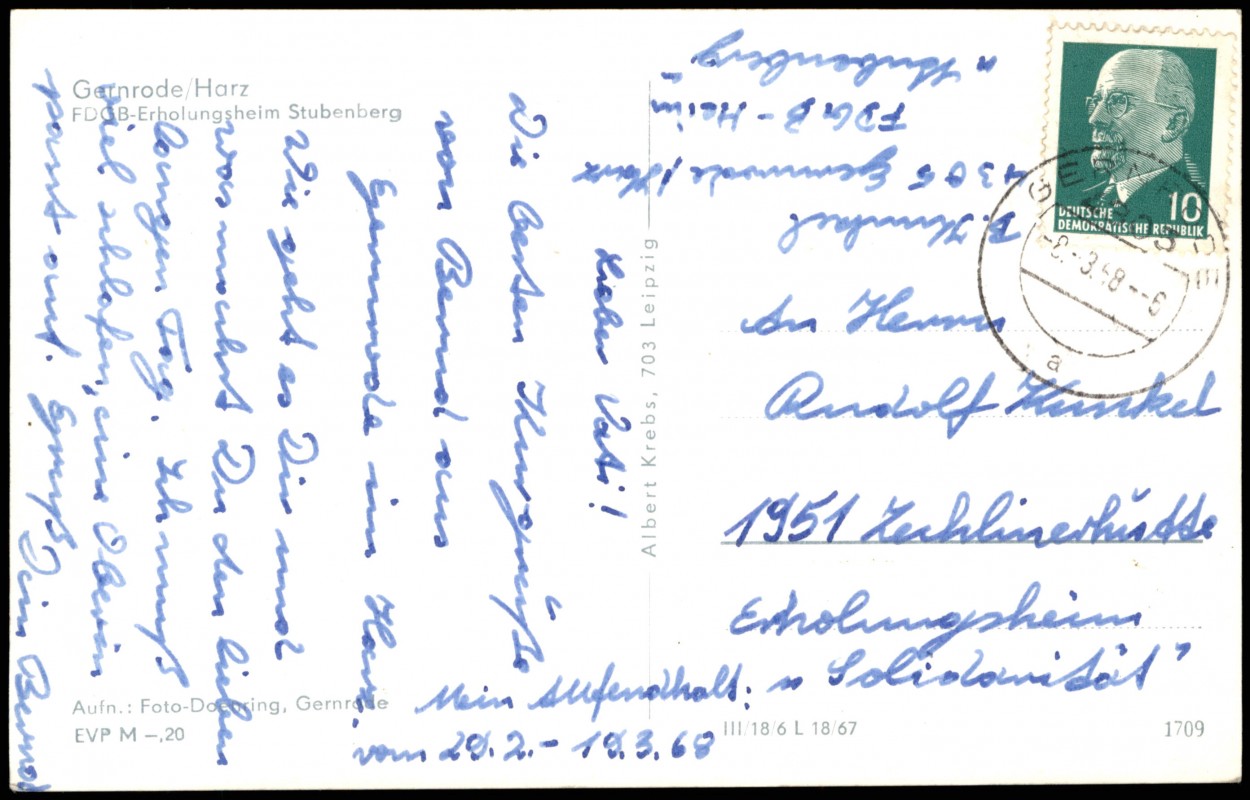 Gernrode/Harz
FDGB-Erholungsheim Stubenberg
Lieber Vati!
Die besten Urlaubsgrüße
von Bernd aus
Gernrode im Harz.
Wie geht es Dir und
was machst Du den lieben
langen Tag. Ich muß
viel schlafen,
Gruß Dein Bernd
Mein Aufendhalt:
vom 29.2. - 19.3.68
Aufn.: Foto-Doehring, Gernrode
EVP M –,20
Albert Krebs, 703 Leipzig
B. Kunkel
4305 Gernrode/Harz
FDGB-Heim
"Stubenberg"
DEUTSCHE
DEMOKRATISCHE REPUBLIK
10
GERNRODE
4305
-8.-3.68--6
a
An Herrn
Rudolf Kunkel
1951 Zechlinerhütte
Erholungsheim
"Solidarität"
III/18/6 L 18/67
1709